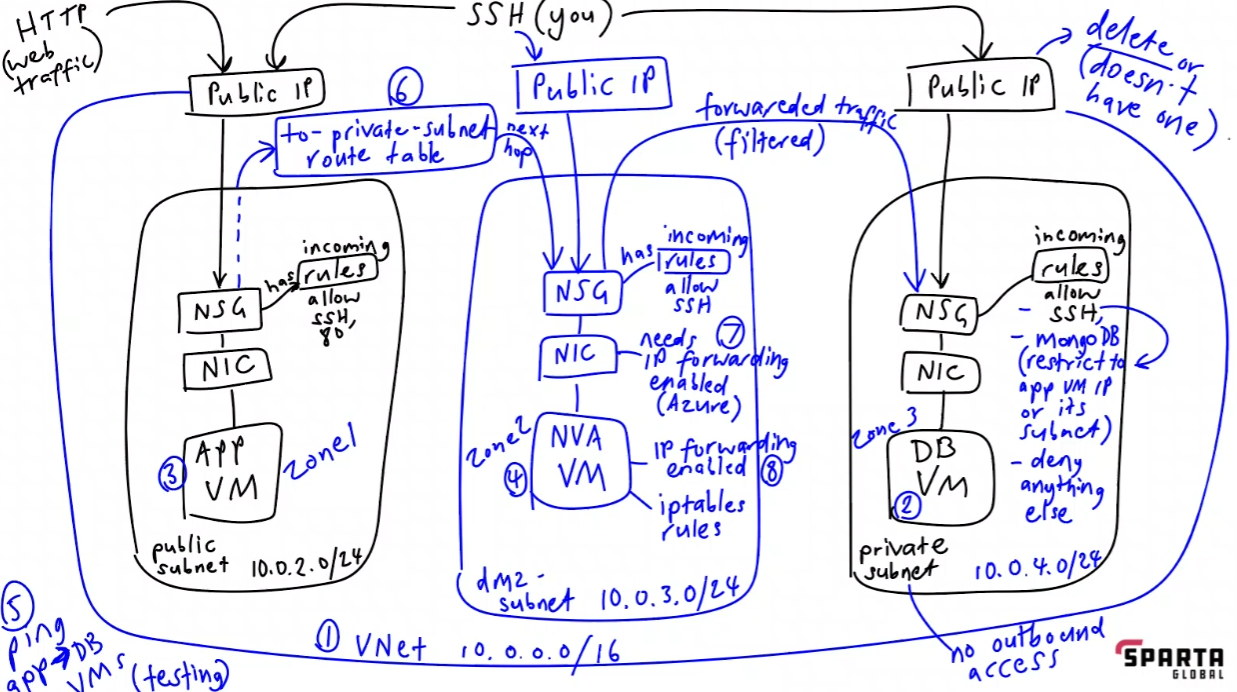 HTTP
(web
traffic)
SSH (you)
Public IP
Public IP
Public IP
delete or
(doesn't
have one)
6
to-private-subnet
route table
next
hop
forwareded traffic
(filtered)
NSG
has
incoming
rules
allow
SSH,
80,
NIC
3
APP
VM
zone1
public
subnet 10.0.2.0/24
NSG
has
incoming
rules
allow
SSH
NIC
needs 7
IP forwarding
enabled
(Azure)
zone2
4
NVA
VM
IP forwarding
enabled 8
iptables
rules
dmz-
subnet 10.0.3.0/24
NSG
incoming
rules
allow
- SSH,
- mongoDB
(restrict to
app VM IP
or its
subnet)
- deny
anything
else
NIC
zone 3
DB
VM
2
private
subnet 10.0.4.0/24
no outbound
access
1 VNet 10.0.0.0/16
5
ping
app → DB
VMs (testing)
SPARTA
GLOBAL